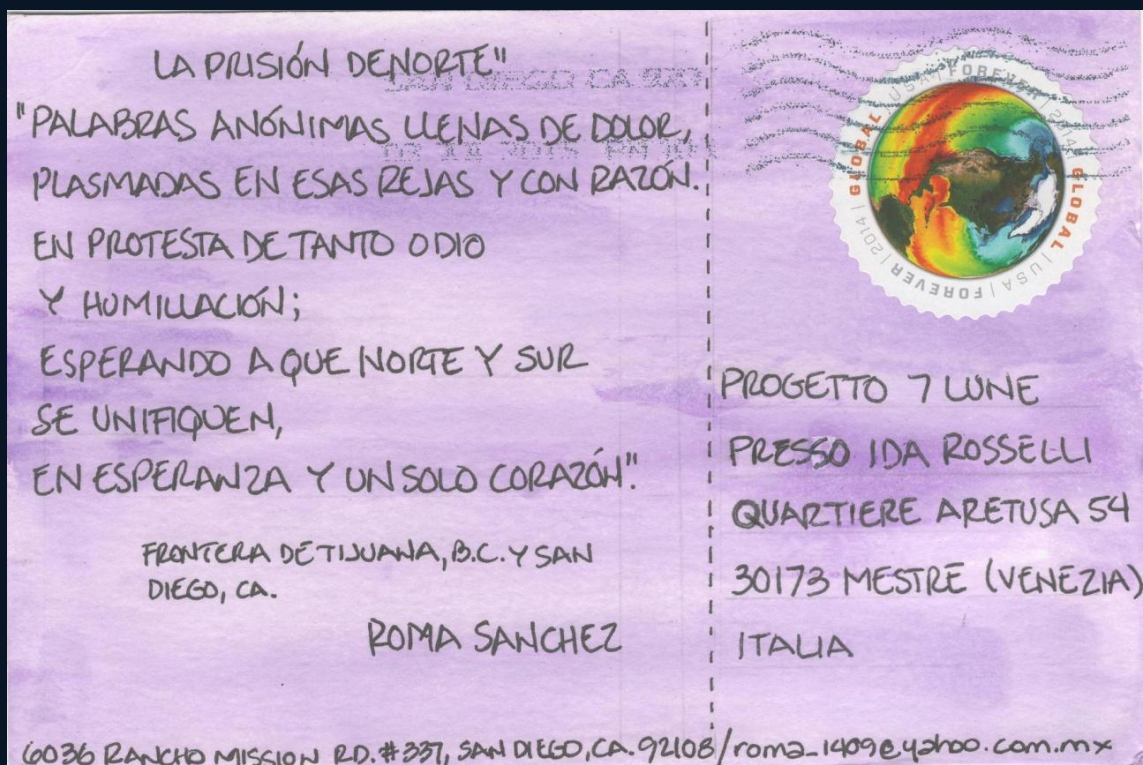 LA PRISIÓN DE NORTE"
"PALABRAS ANÓNIMAS LLENAS DE DOLOR,
PLASMADAS EN ESAS REJAS Y CON RAZÓN.
EN PROTESTA DE TANTO ODIO
Y HUMILLACIÓN;
ESPERANDO A QUE NORTE Y SUR
SE UNIFIQUEN,
EN ESPERANZA Y UN SOLO CORAZÓN".
FRONTERA DE TIJUANA, B.C. Y SAN
DIEGO, CA.
ROMA SANCHEZ
SAN DIEGO CA
GLOBAL | USA | FOREVER | 2014 | GLOBAL | USA | FOREVER | 2014 |
PROGETTO 7 LUNE
PRESSO IDA ROSSELLI
QUARTIERE ARETUSA 54
30173 MESTRE (VENEZIA)
ITALIA
6036 RANCHO MISSION RD. #337, SAN DIEGO, CA. 92108/roma_1409@yahoo.com.mx